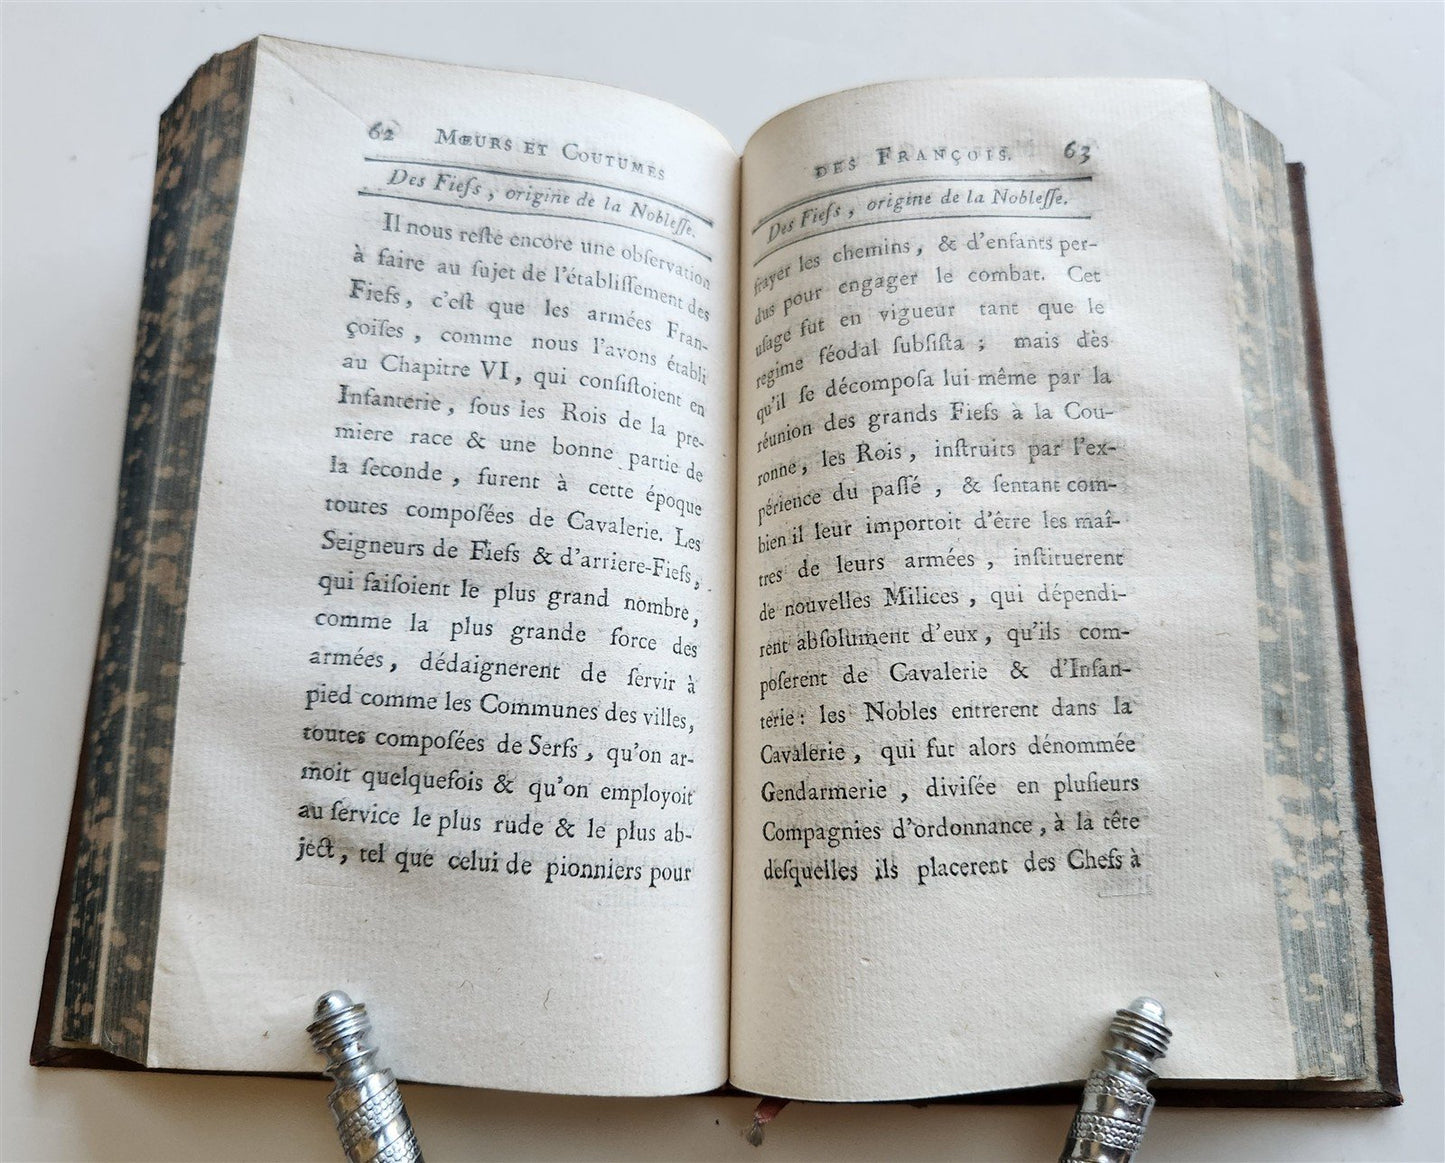 62 MŒURS ET COUTUMES
Des Fiefs, origine de la Nobleſſe.
Il nous reſte encore une obſervation
à faire au ſujet de l'établiſſement des
Fiefs, c'eſt que les armées Fran-
çoiſes, comme nous l'avons établi
au Chapitre VI, qui conſiſtoient en
Infanterie, ſous les Rois de la pre-
miere race & une bonne partie de
la ſeconde, furent à cette époque
toutes compoſées de Cavalerie. Les
Seigneurs de Fiefs & d'arriere-Fiefs,
qui faiſoient le plus grand nombre,
comme la plus grande force des
armées, dédaignerent de ſervir à
pied comme les Communes des villes,
toutes compoſées de Serfs, qu'on ar-
moit quelquefois & qu'on employoit
au ſervice le plus rude & le plus ab-
ject, tel que celui de pionniers pour
DES FRANÇOIS. 63
Des Fiefs, origine de la Nobleſſe.
frayer les chemins, & d'enfants per-
dus pour engager le combat. Cet
uſage fut en vigueur tant que le
régime féodal ſubſiſta; mais dès
qu'il ſe décompoſa lui-même par la
réunion des grands Fiefs à la Cou-
ronne, les Rois, inſtruits par l'ex-
périence du paſſé, & ſentant com-
bien il leur importoit d'être les maî-
tres de leurs armées, inſtituerent
de nouvelles Milices, qui dépendi-
rent abſolument d'eux, qu'ils com-
poſerent de Cavalerie & d'Infan-
terie: les Nobles entrerent dans la
Cavalerie, qui fut alors dénommée
Gendarmerie, diviſée en pluſieurs
Compagnies d'ordonnance, à la tête
deſquelles ils placerent des Chefs à